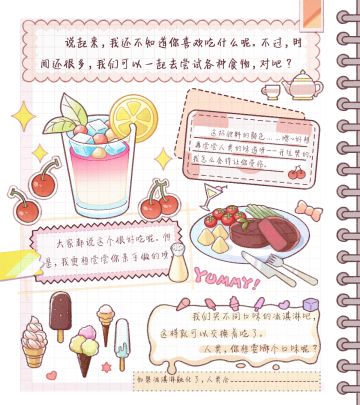 说起来，我还不知道你喜欢吃什么呢。不过，时
间还很多，我们可以一起去尝试各种食物，对吧？
这杯饮料的颜色……嗯~好想
再尝尝人类的味道呀——开玩笑的，
我怎么会舍得让你受伤。
大家都说这个很好吃呢。但
是，我更想尝尝你亲手做的呀
YUMMY!
我们买不同口味的冰淇淋吧，
这样就可以交换着吃了。
人类，你想要哪个口味呢？
如果冰淇淋融化了，人类会